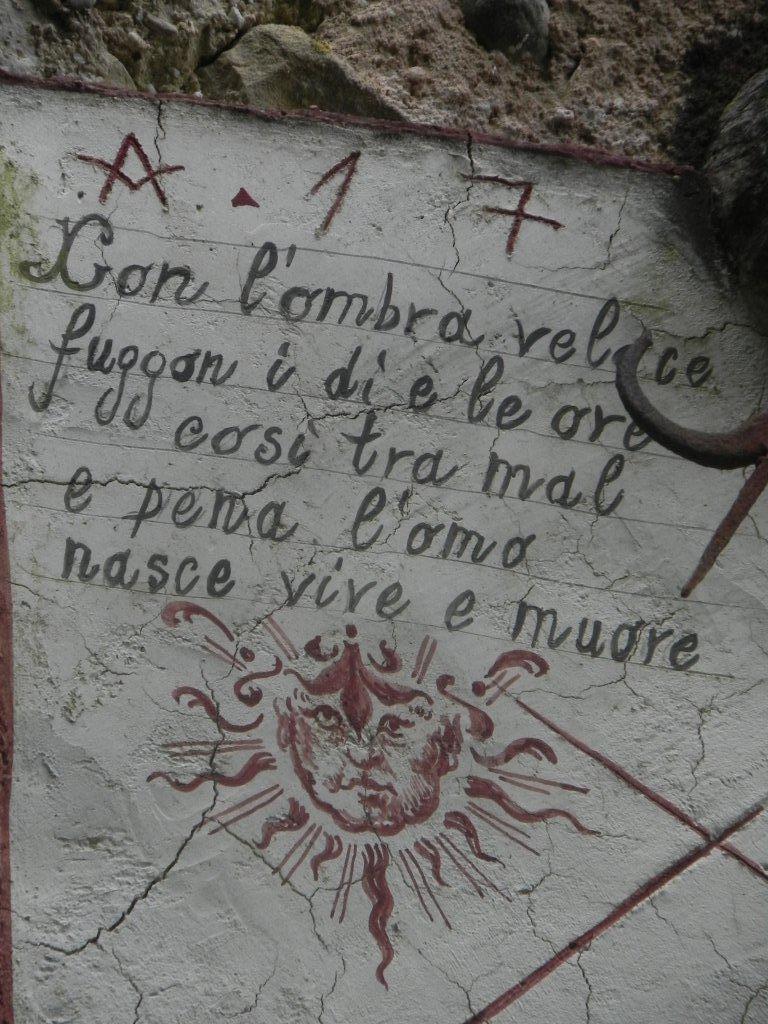 A. 17
Con l'ombra veloce
fuggon i dì e le ore
così tra mal
e pena l'omo
nasce vive e muore